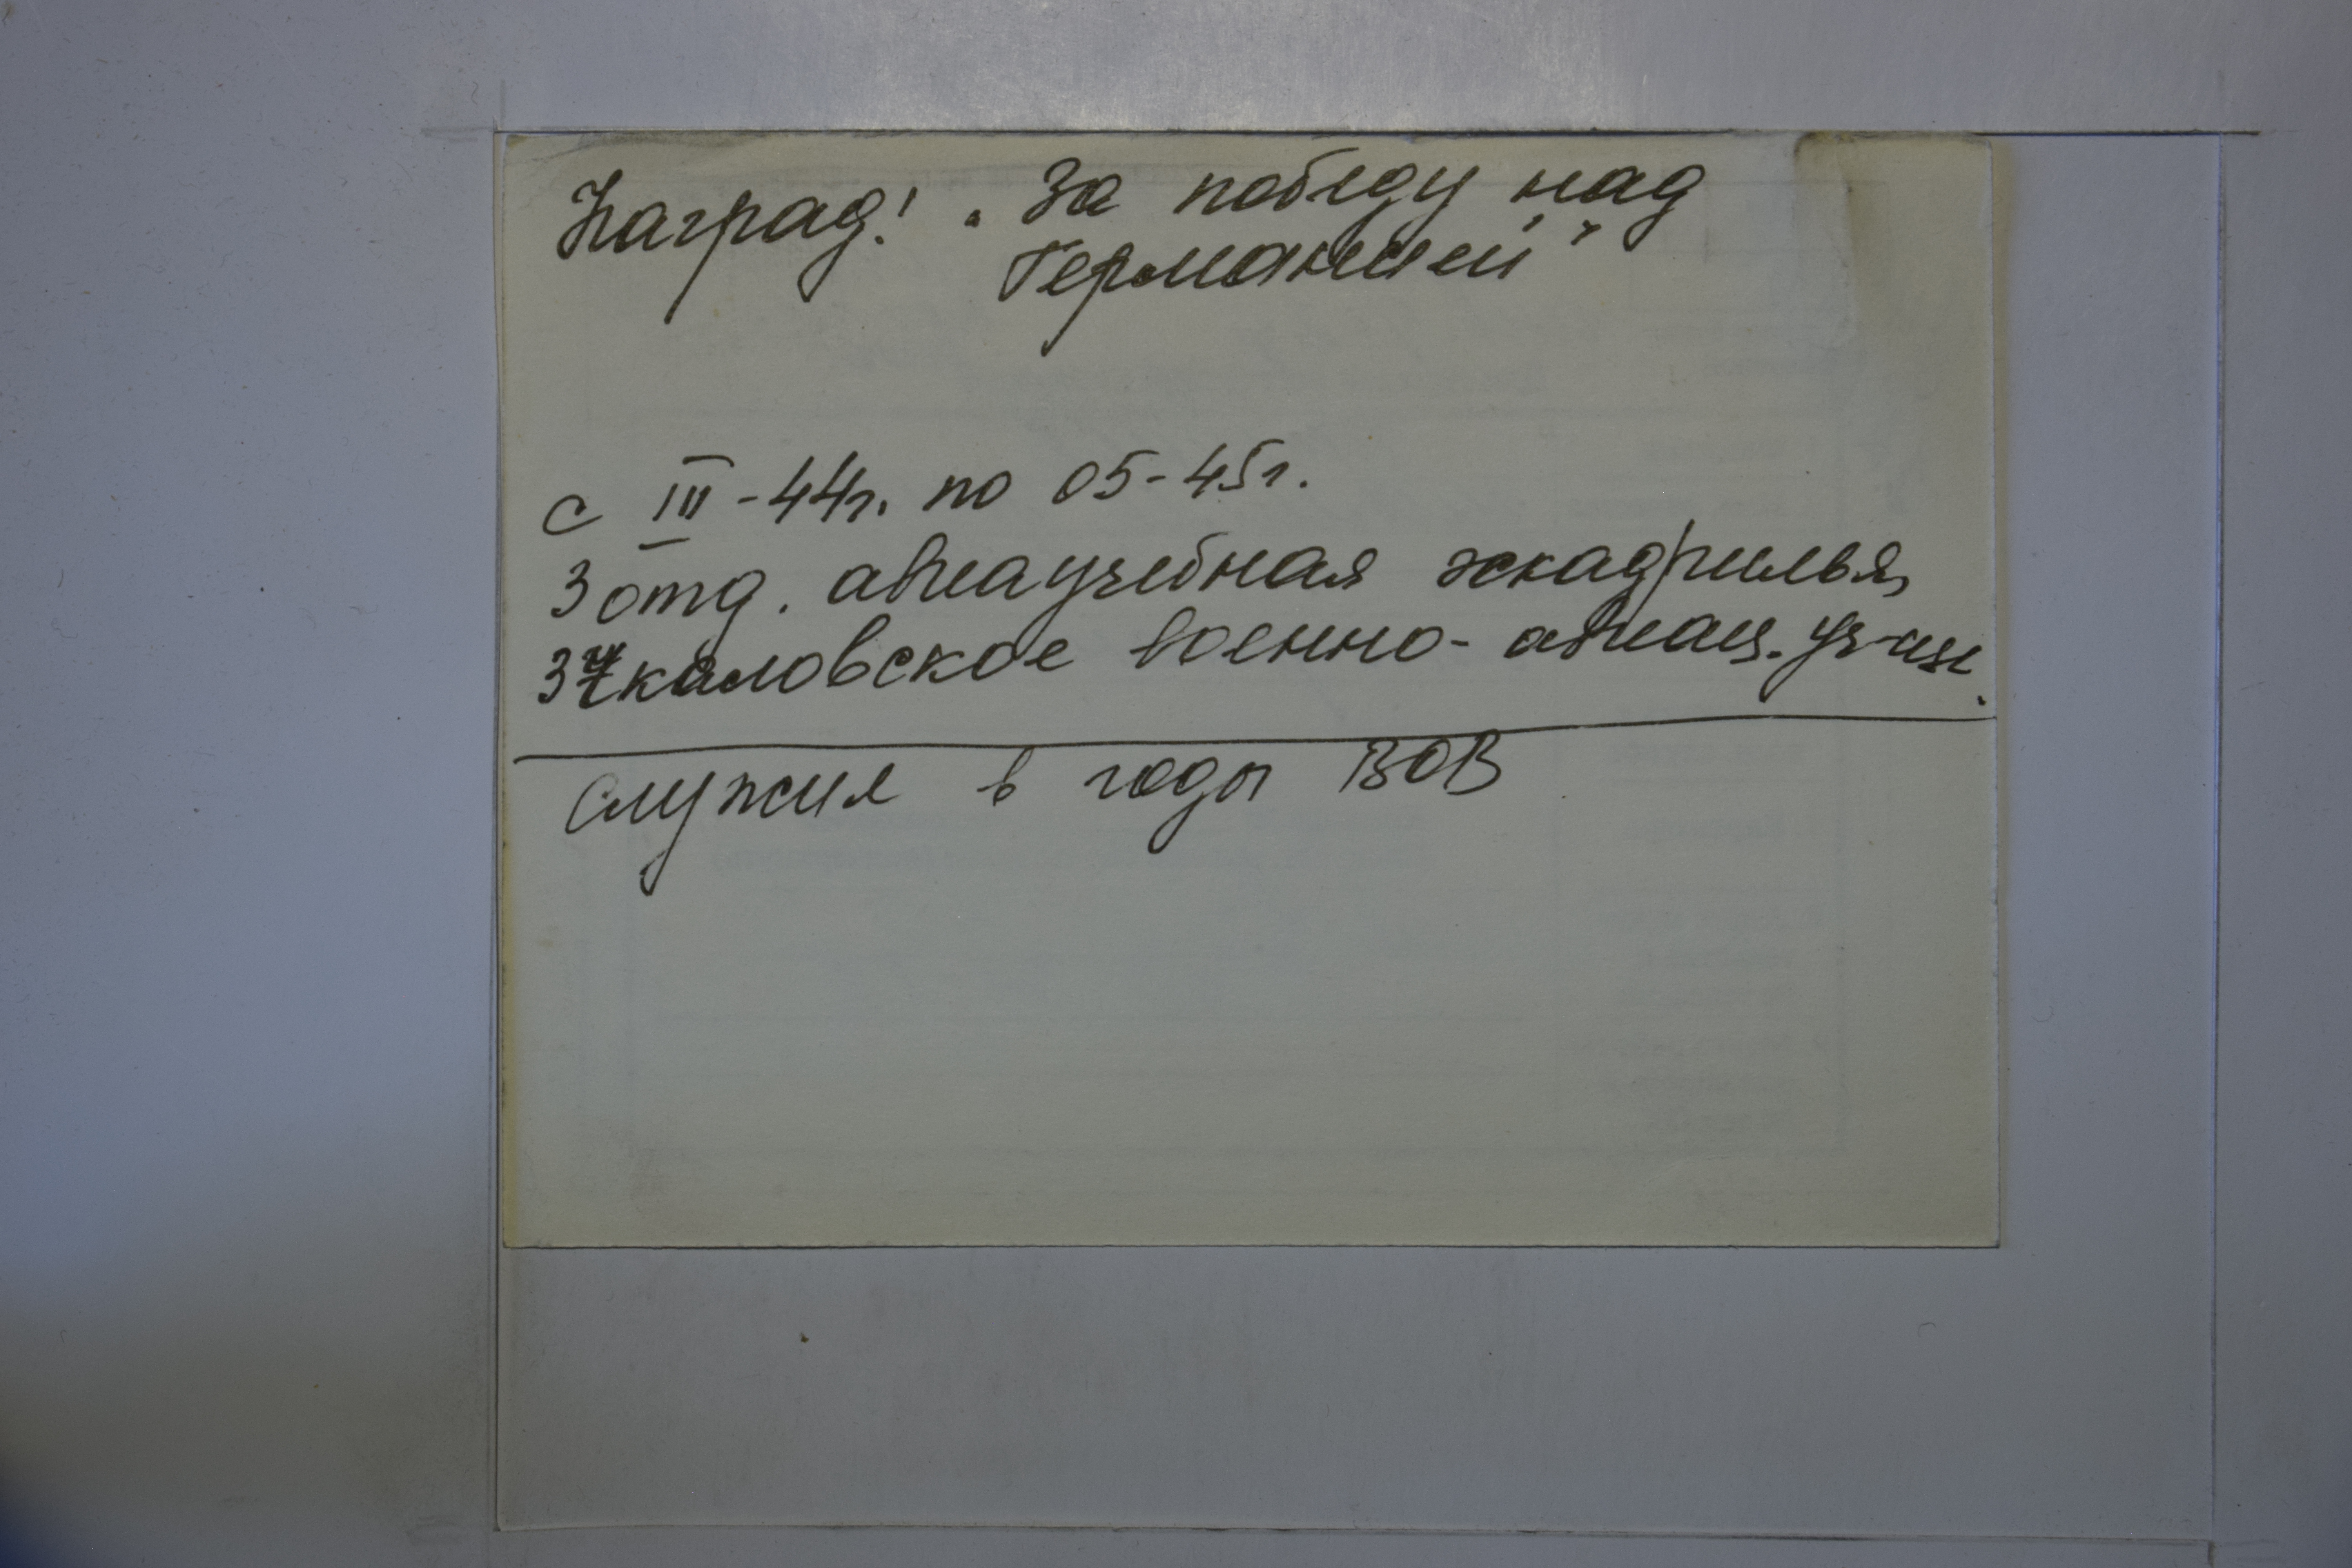 Наград! „За победу над
Германией"
с III-44г. по 05-45г.
3 отд. авиаучебная эскадрилья,
3 Чкаловское военно-авиац. уч-щe.
служил в годы ВОВ